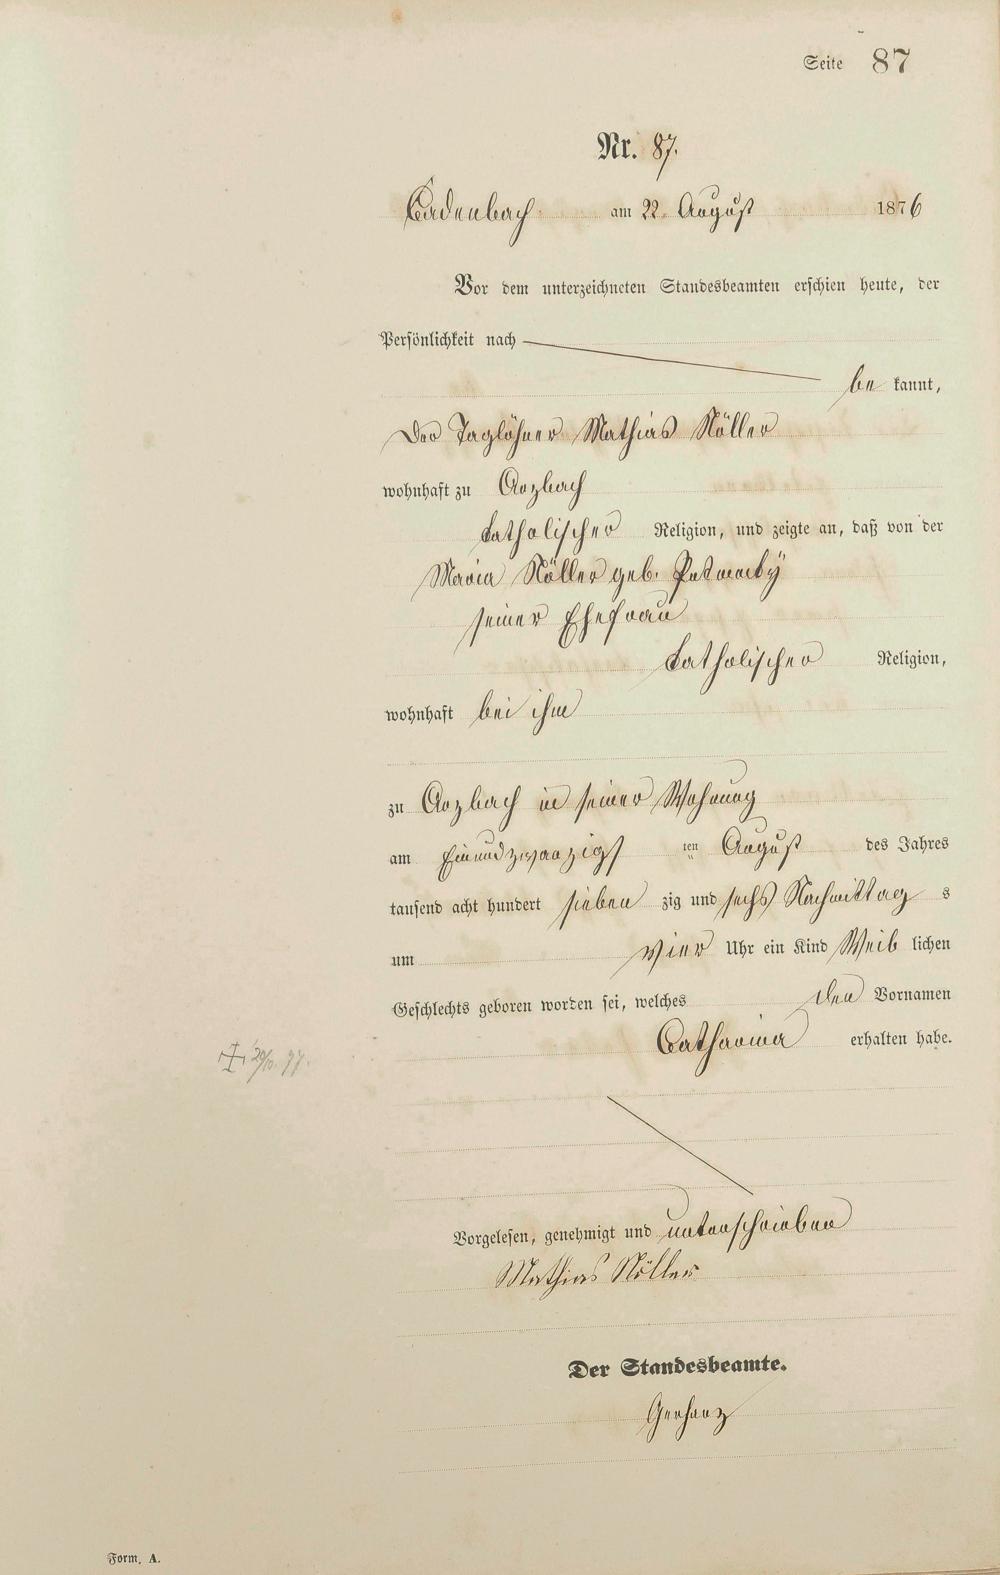 Seite 87
Nr. 87.
Cadenbach am 22. August 1876
Vor dem unterzeichneten Standesbeamten erschien heute, der
Persönlichkeit nach
be kannt,
Der Taglöhner Mathias Nöller
wohnhaft zu Arzbach
katholischer Religion, und zeigte an, daß von der
Maria Nöller geb.
seiner Ehefrau
katholischer Religion,
wohnhaft bei ihm
zu Arzbach in seiner Wohnung
am Einundzwanzigs ten August des Jahres
tausend acht hundert sieben zig und sechs Nachmittag s
um vier Uhr ein Kind Weib lichen
Geschlechts geboren worden sei, welches den Vornamen
Catharina erhalten habe.
Vorgelesen, genehmigt und unterschrieben
Mathias Nöller
Der Standesbeamte.
Gerharz
Form. A.